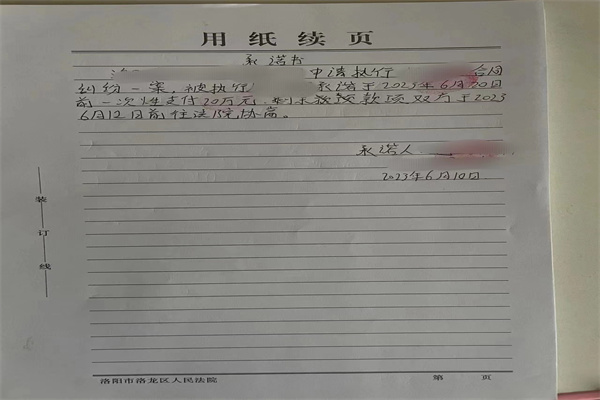 用纸续页
承诺书
申请执行 合同
纠纷一案，被执行 承诺于2023年6月20日
前一次性支付20万元，剩余 款项双方于2023
6月12日前往法院协商。
承诺人
2023年6月10日
装
订
线
洛阳市洛龙区人民法院 第 页